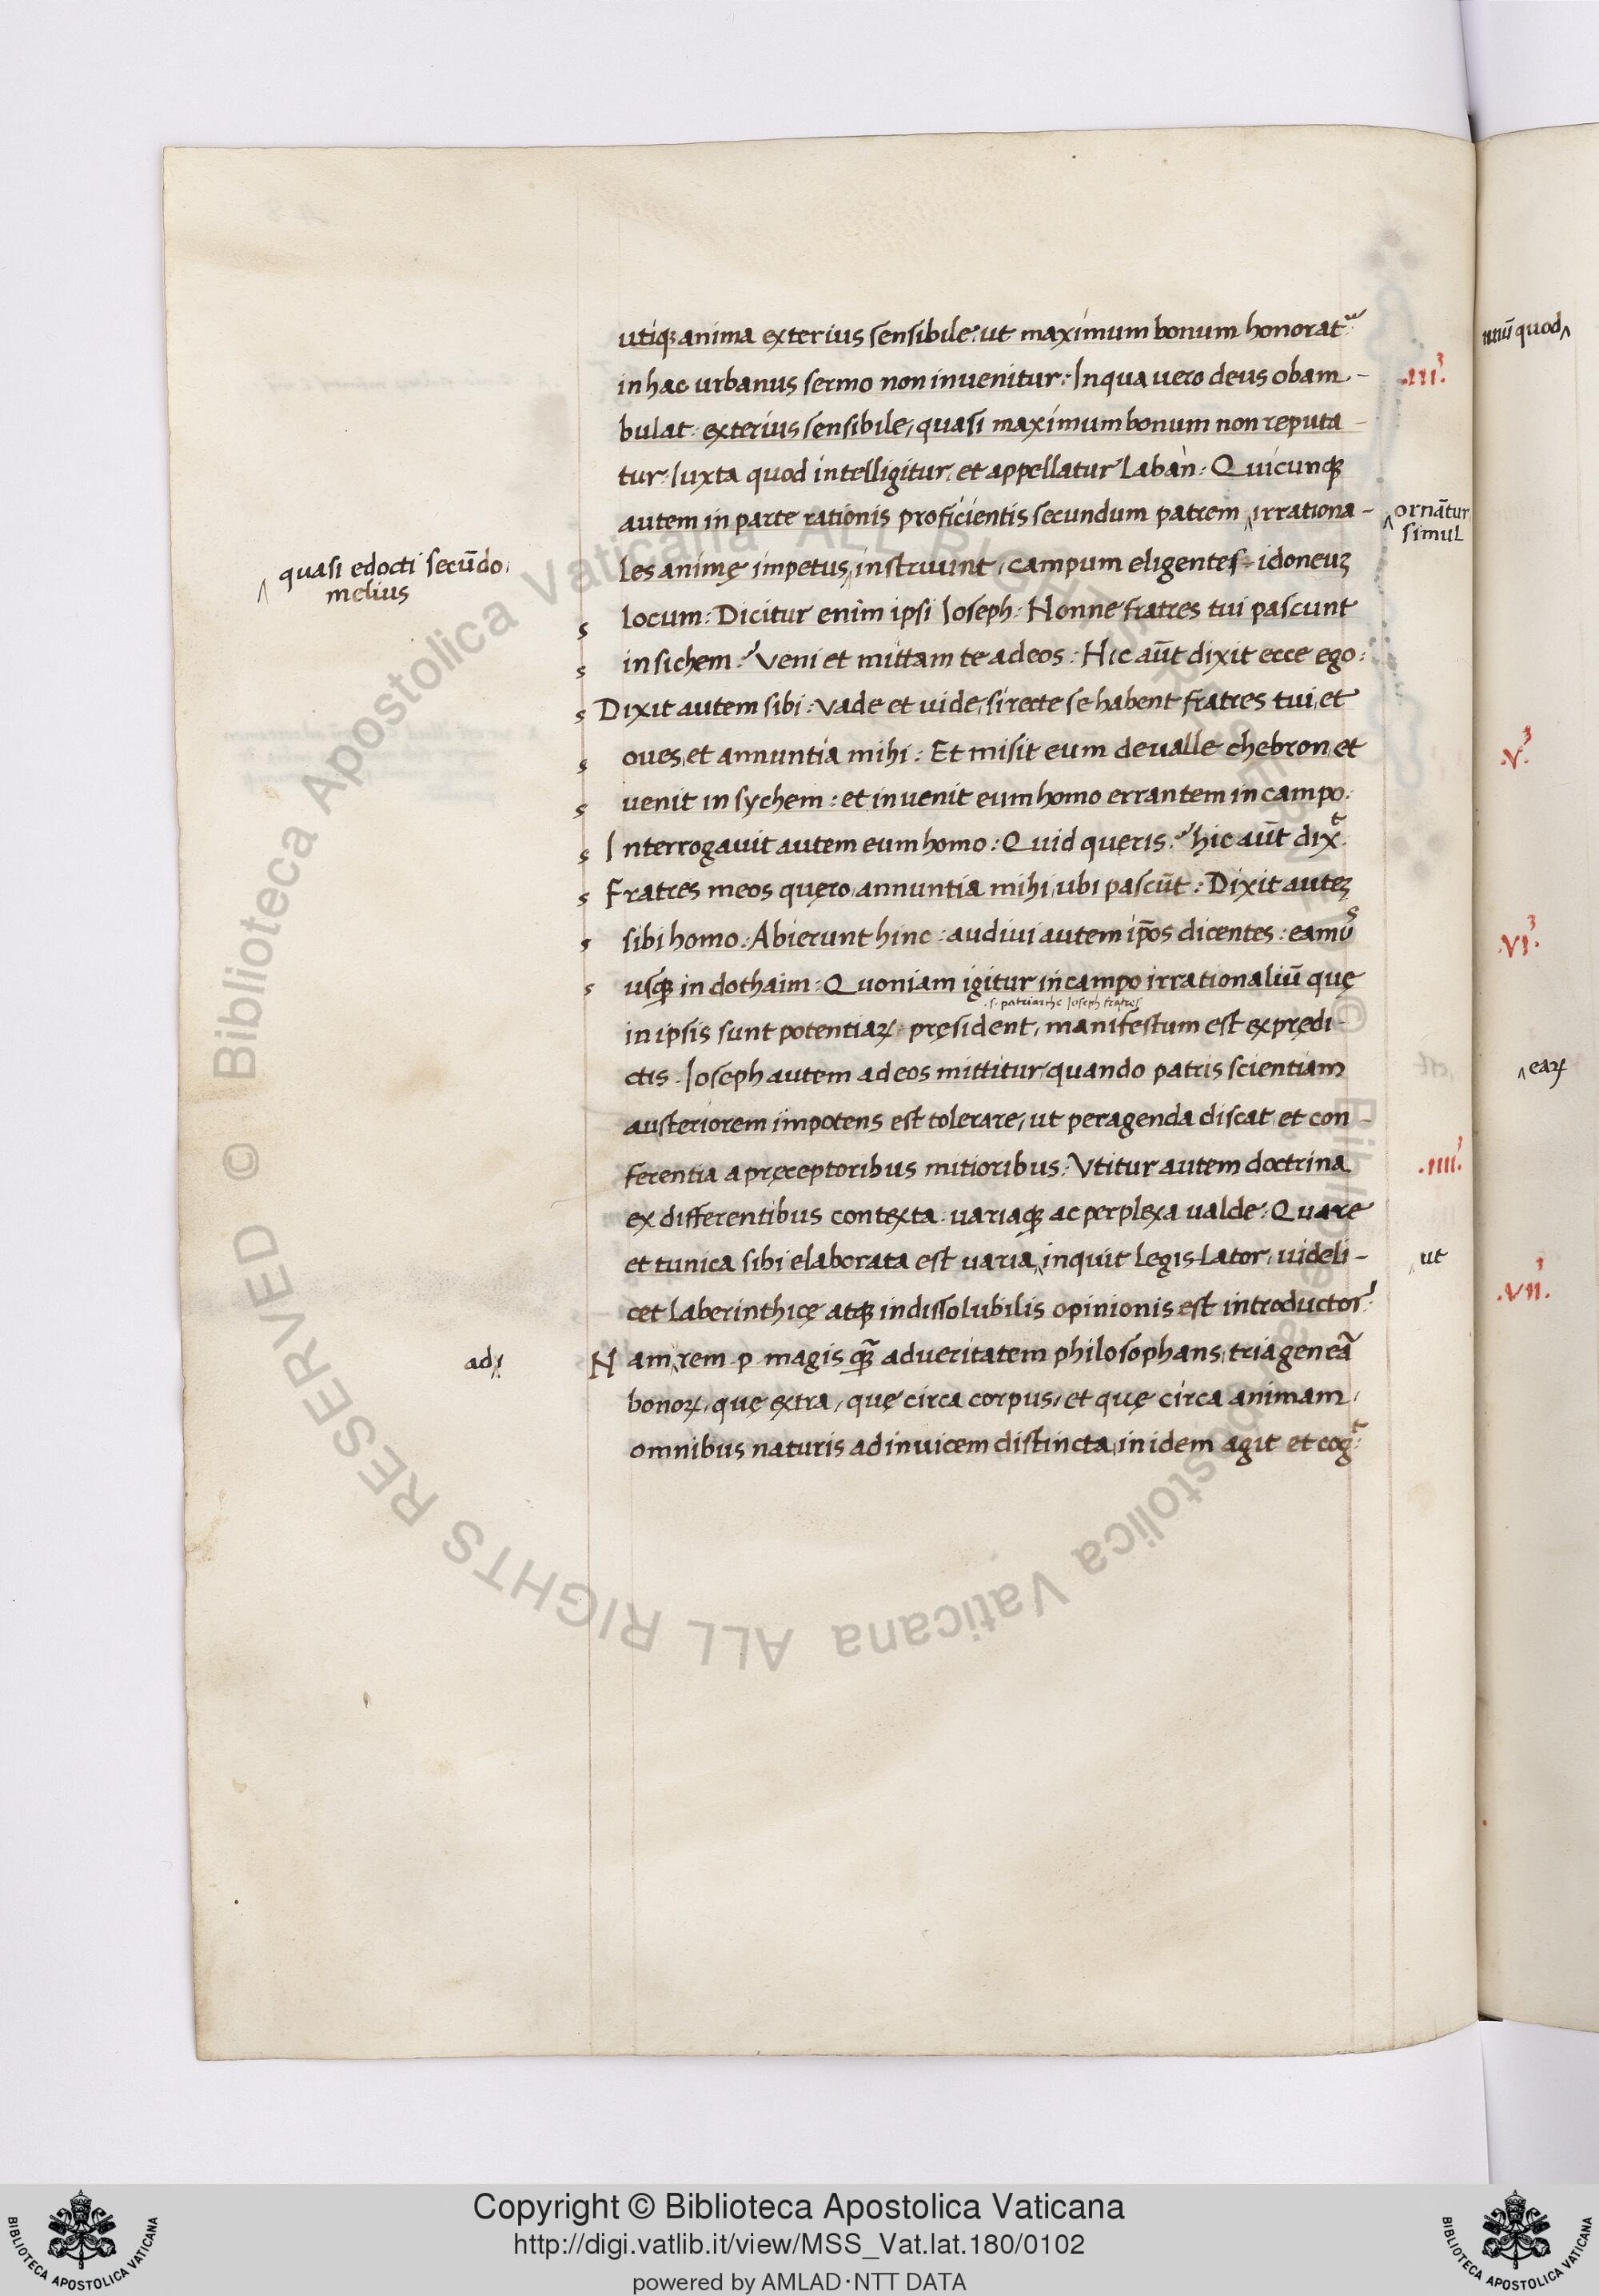 utiqꝫ anima exterius sensibile: ut maximum bonum honorat᷑
in hac urbanus sermo non inuenitur: In qua uero deus obam-
.III.
bulat: exterius sensibile, quasi maximum bonum non reputa-
tur: Iuxta quod intelligitur, et appellatur Laban: Quicunqꝫ
autem in parte rationis proficientis secundum patrem ‸ irrationa-
‸ ornãtur
simul
les animę impetus ‸ instruunt, campum eligentes idoneuꝫ
‸ quasi edocti secũdo,
melius
locum: Dicitur enim ipsi Ioseph: Nonne fratres tui pascunt
in sichem? Veni et mittam te ad eos: Hic aũt dixit ecce ego:
Dixit autem sibi: Vade et uide, si recte se habent fratres tui, et
oues, et annuntia mihi: Et misit eum de ualle chebron, et
uenit in sychem: et inuenit eum homo errantem in campo:
Interrogauit autem eum homo: Quid queris? hic aũt dixᵗ:
Fratres meos quęro, annuntia mihi, ubi pascũt: Dixit auteꝫ
sibi homo: Abierunt hinc: audiui autem ip̃os dicentes: eamuˢ
usqꝫ in dothaim: Quoniam igitur in campo irrationaliũ quę
.s. patriarche Ioseph fratres
in ipsis sunt potentiaꝝ pręsident, manifestum est ex prędi-
ctis. Ioseph autem ad eos mittitur, quando patris scientiam
austeriorem impotens est tolerare, ut peragenda discat, et con-
ferentia a pręceptoribus mitioribus: Vtitur autem doctrina
.IIII.
ex differentibus contexta, uariaqꝫ ac perplexa ualde: Quare
et tunica sibi elaborata est uaria, ‸ inquit Legis Lator, uideli-
‸ ut
cet Laberinthicę atqꝫ indissolubilis opinionis est introductor:
Nam ‸ rem .p. magis quã ad ueritatem philosophans, tria geneã
ad
bonoꝝ, quę extra, quę circa corpus, et quę circa animam,
omnibus naturis adinuicem distincta, in idem agit et cogᵗ:
quod‸
.V.
.VI.
‸ eaꝝ
.VII.
© Biblioteca Apostolica Vaticana ALL RIGHTS RESERVED
© Biblioteca Apostolica Vaticana ALL RIGHTS RESERVED
BIBLIOTECA APOSTOLICA VATICANA
Copyright © Biblioteca Apostolica Vaticana
http://digi.vatlib.it/view/MSS_Vat.lat.180/0102
powered by AMLAD·NTT DATA
BIBLIOTECA APOSTOLICA VATICANA